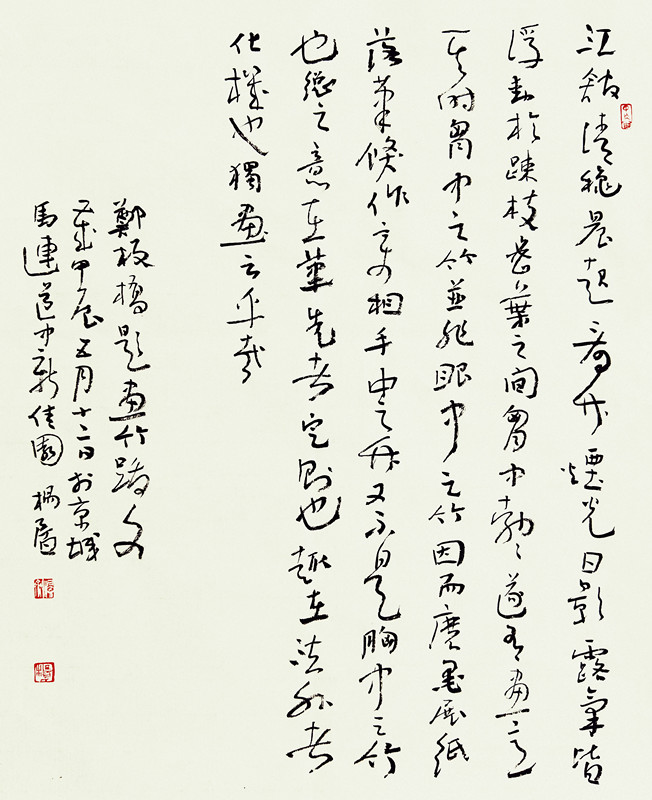 江舘清穐晨起看竹煙光日影露氣皆
浮動於疎枝密葉之間胷中勃〻遂有畫意
其時胷中之竹並非眼中之竹因而磨墨展紙
落筆倏作變相手中之竹又不是胸中之竹
也總之意在筆先者定則也趣在法外者
化機也獨畫云乎哉
鄭板橋題畫竹跋文
歲甲辰五月十二日於京城
馬連道中新佳園